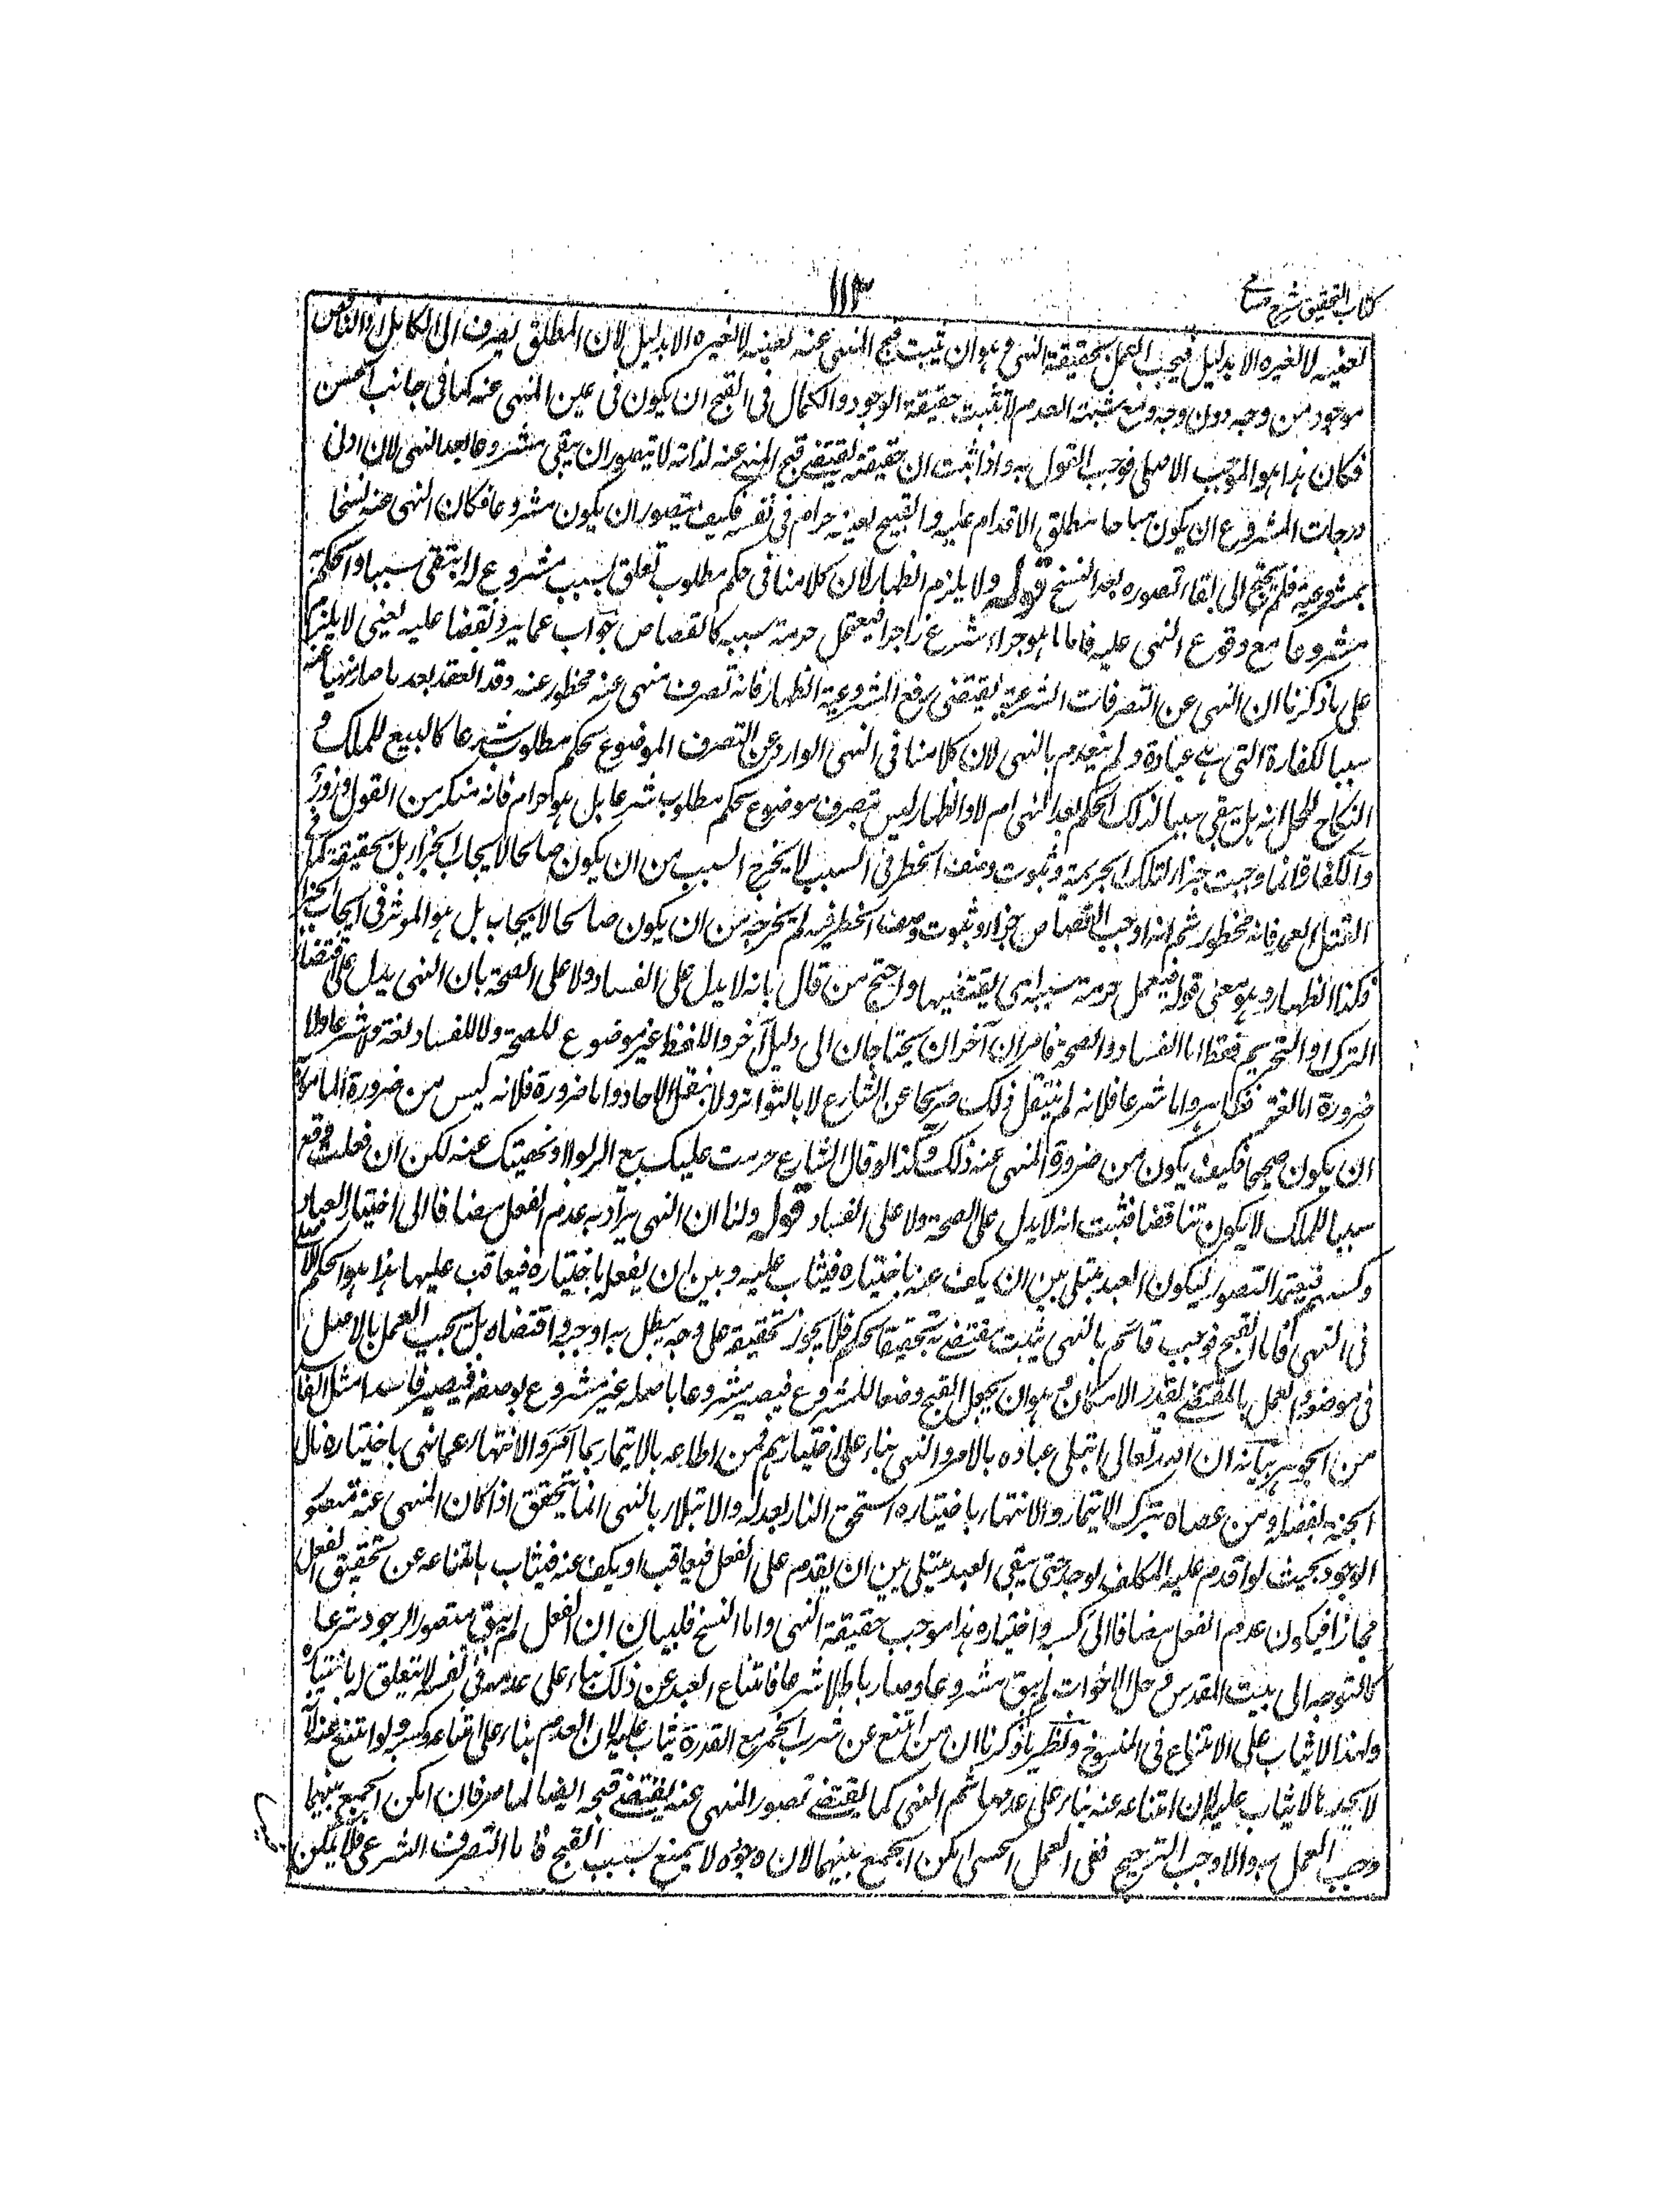 كتاب التحقيق شرح حسامی
١١٣
لعينه لا لغيره الا بدليل فيجب العمل بحقيقة النهى وهو ان يثبت قبح المنهى عنه لعينه لا لغيره الا بدليل لان المطلق يصرف الى الكامل اذ الناقص
موجود من وجه دون وجه ومع شبهة العدم لا تثبت حقيقة الوجود والكمال فى القبح ان يكون فى عين المنهى عنه كما فى جانب الحسن
فكان هذا هو الموجب الاصلى فوجب القول به واذا ثبت ان حقيقته تقتضى قبح المنهى عنه لذاته لا يتصور ان يبقى مشروعا بعد النهى لان ادنى
درجات المشروع ان يكون مباحا مطلق الاقدام عليه والقبيح لعينه حرام فى نفسه فكيف يتصور ان يكون مشروعا فكان النهى عنه نسخا
بمشروعيته فلم يحتج الى ابقاء تصوره بعد النسخ قوله ولا يلزم الظهار لان كلامنا فى حكم مطلوب تعلق بسبب مشروع له ابتقى سببا والحكم به
مشروعا مع وقوع النهى عليه فاما ما هو جزاء شرع زاجرا فيعتمل حرمة سببه كالقصاص جواب عما يرد نقضا عليه يعنى لا يلزم
على ما ذكرنا ان النهى عن التصرفات الشرعية يقتضى رفع المشروعية الظهار فانه تصرف منهى عنه محظور عنه وقد انعقد بعد ما صار منهيا عنه
سببا للكفارة التى هى عبادة ولم ينعدم بالنهى لان كلامنا فى النهى الوارد عن التصرف الموضوع لحكم مطلوب شرعا كالبيع للملك و
النكاح للحل انه هل يبقى سببا لذلك الحكم بعد النهى ام لا والظهار ليس بتصرف موضوع لحكم مطلوب شرعا بل هو حرام فانه منكر من القول وزور
والكفارة انما وجبت جزاء لتلك الجريمة وثبوت وصف الحظر فى السبب لا يخرج السبب من ان يكون صالحا لايجاب الجزاء بل يحقيقه كما فى
القتل العمد فانه محظور ثم انه اوجب القصاص جزاء وثبوت وصف الحظر فيه لم يخرجه من ان يكون صالحا لايجاب بل هو الموثر فى ايجاب الجزاء
فكذا الظهار وهو معنى قوله فيعتمل حرمة سببه اى يقتضيها واحتج من قال بانه لا يدل على الفساد ولا على الصحة بان النهى يدل على اقتضاء
الترك او التحريم فقط اما الفساد والصحة فامران آخران يحتاجان الى دليل آخر واللفظ غير موضوع للصحة ولا للفساد لغة ولا شرعا ولا
ضرورة اما لغة فظاهر واما شرعا فلانه لم ينقل ذلك صريحا عن الشارع لا بالتواتر ولا بنقل الآحاد واما ضرورة فلانه ليس من ضرورة المامور
ان يكون صحيحا فكيف يكون من ضرورة المنهى عنه ذلك وكذا لو قال الشارع حرمت عليك بيع الربوا او نهيتك عنه لكن ان فعلت وقع
سببا للملك لا يكون تناقضا فثبت انه لا يدل على الصحة ولا على الفساد قوله ولنا ان النهى يراد به عدم الفعل مضافا الى اختيار العباد
وكسبهم فيعتمد التصور ليكون العبد مبتلى بين ان يكف عنه باختياره فيثاب عليه وبين ان يفعله باختياره فيعاقب عليها هذا هو الحكم الاصلى
فى النهى فاما القبح فوصف قائم بالنهى يثبت مقتضى به تحقيقا لحكمه فلا يجوز تحقيقه على وجه يبطل به ما اوجبه واقتضاه بل يجب العمل بالاصل
فى موضعه والعمل بالمقتضى بقدر الامكان وهو ان يجعل القبح وصفا للمشروع فيصير مشروعا باصله غير مشروع بوصفه فيصير فاسدا مثل الفاسد
من الجوهر بيانه ان الله تعالى ابتلى عباده بالامر والنهى بناء على اختيارهم فمن اطاعه بالايتمار بما امر والانتهاء عما نهى باختياره نال
الجنة بفضله ومن عصاه بترك الايتمار والانتهاء باختياره استحق النار بعدله والابتلاء بالنهى انما يتحقق اذا كان المنهى عنه متصور
الوجود بحيث لو اقدم عليه المكلف لوجد حتى يبقى العبد مبتلى بين ان يقدم على الفعل فيعاقب او يكف عنه فيثاب بامتناعه عن تحقيق الفعل
مختارا فيكون عدم الفعل مضافا الى كسبه واختياره هذا موجب حقيقة النهى واما النسخ فلبيان ان الفعل لم يبق متصور الوجود شرعا
كالتوجه الى بيت المقدس وحل الاخوات لم يبق مشروعا وصار باطلا شرعا فامتناع العبد عن ذلك بناء على عدمه فى نفسه لا تعلق له باختياره
ولهذا لا يثاب على الامتناع فى المنسوخ ونظير ما ذكرنا ان من امتنع عن شرب الخمر مع القدرة يثاب عليه لان العدم بناء على امتناعه وكسبه ولو امتنع عنه لانه
لا يجدها لا يثاب عليه لان امتناعه عنه بناء على عدمها ثم النهى كما يقتضى تصور المنهى عنه يقتضى قبحه ايضا لما مر فان امكن الجمع بينهما
وجب العمل به والا وجب الترجيح ففى العمل الحسى امكن الجمع بينهما لان وجوده لا يمنع بسبب القبح فاما التصرف الشرعى فلا يمكن